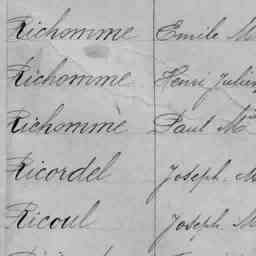 Richomme Emile M
Richomme Henri Julien
Richomme Paul M
Ricordel Joseph M
Ricoul Joseph M